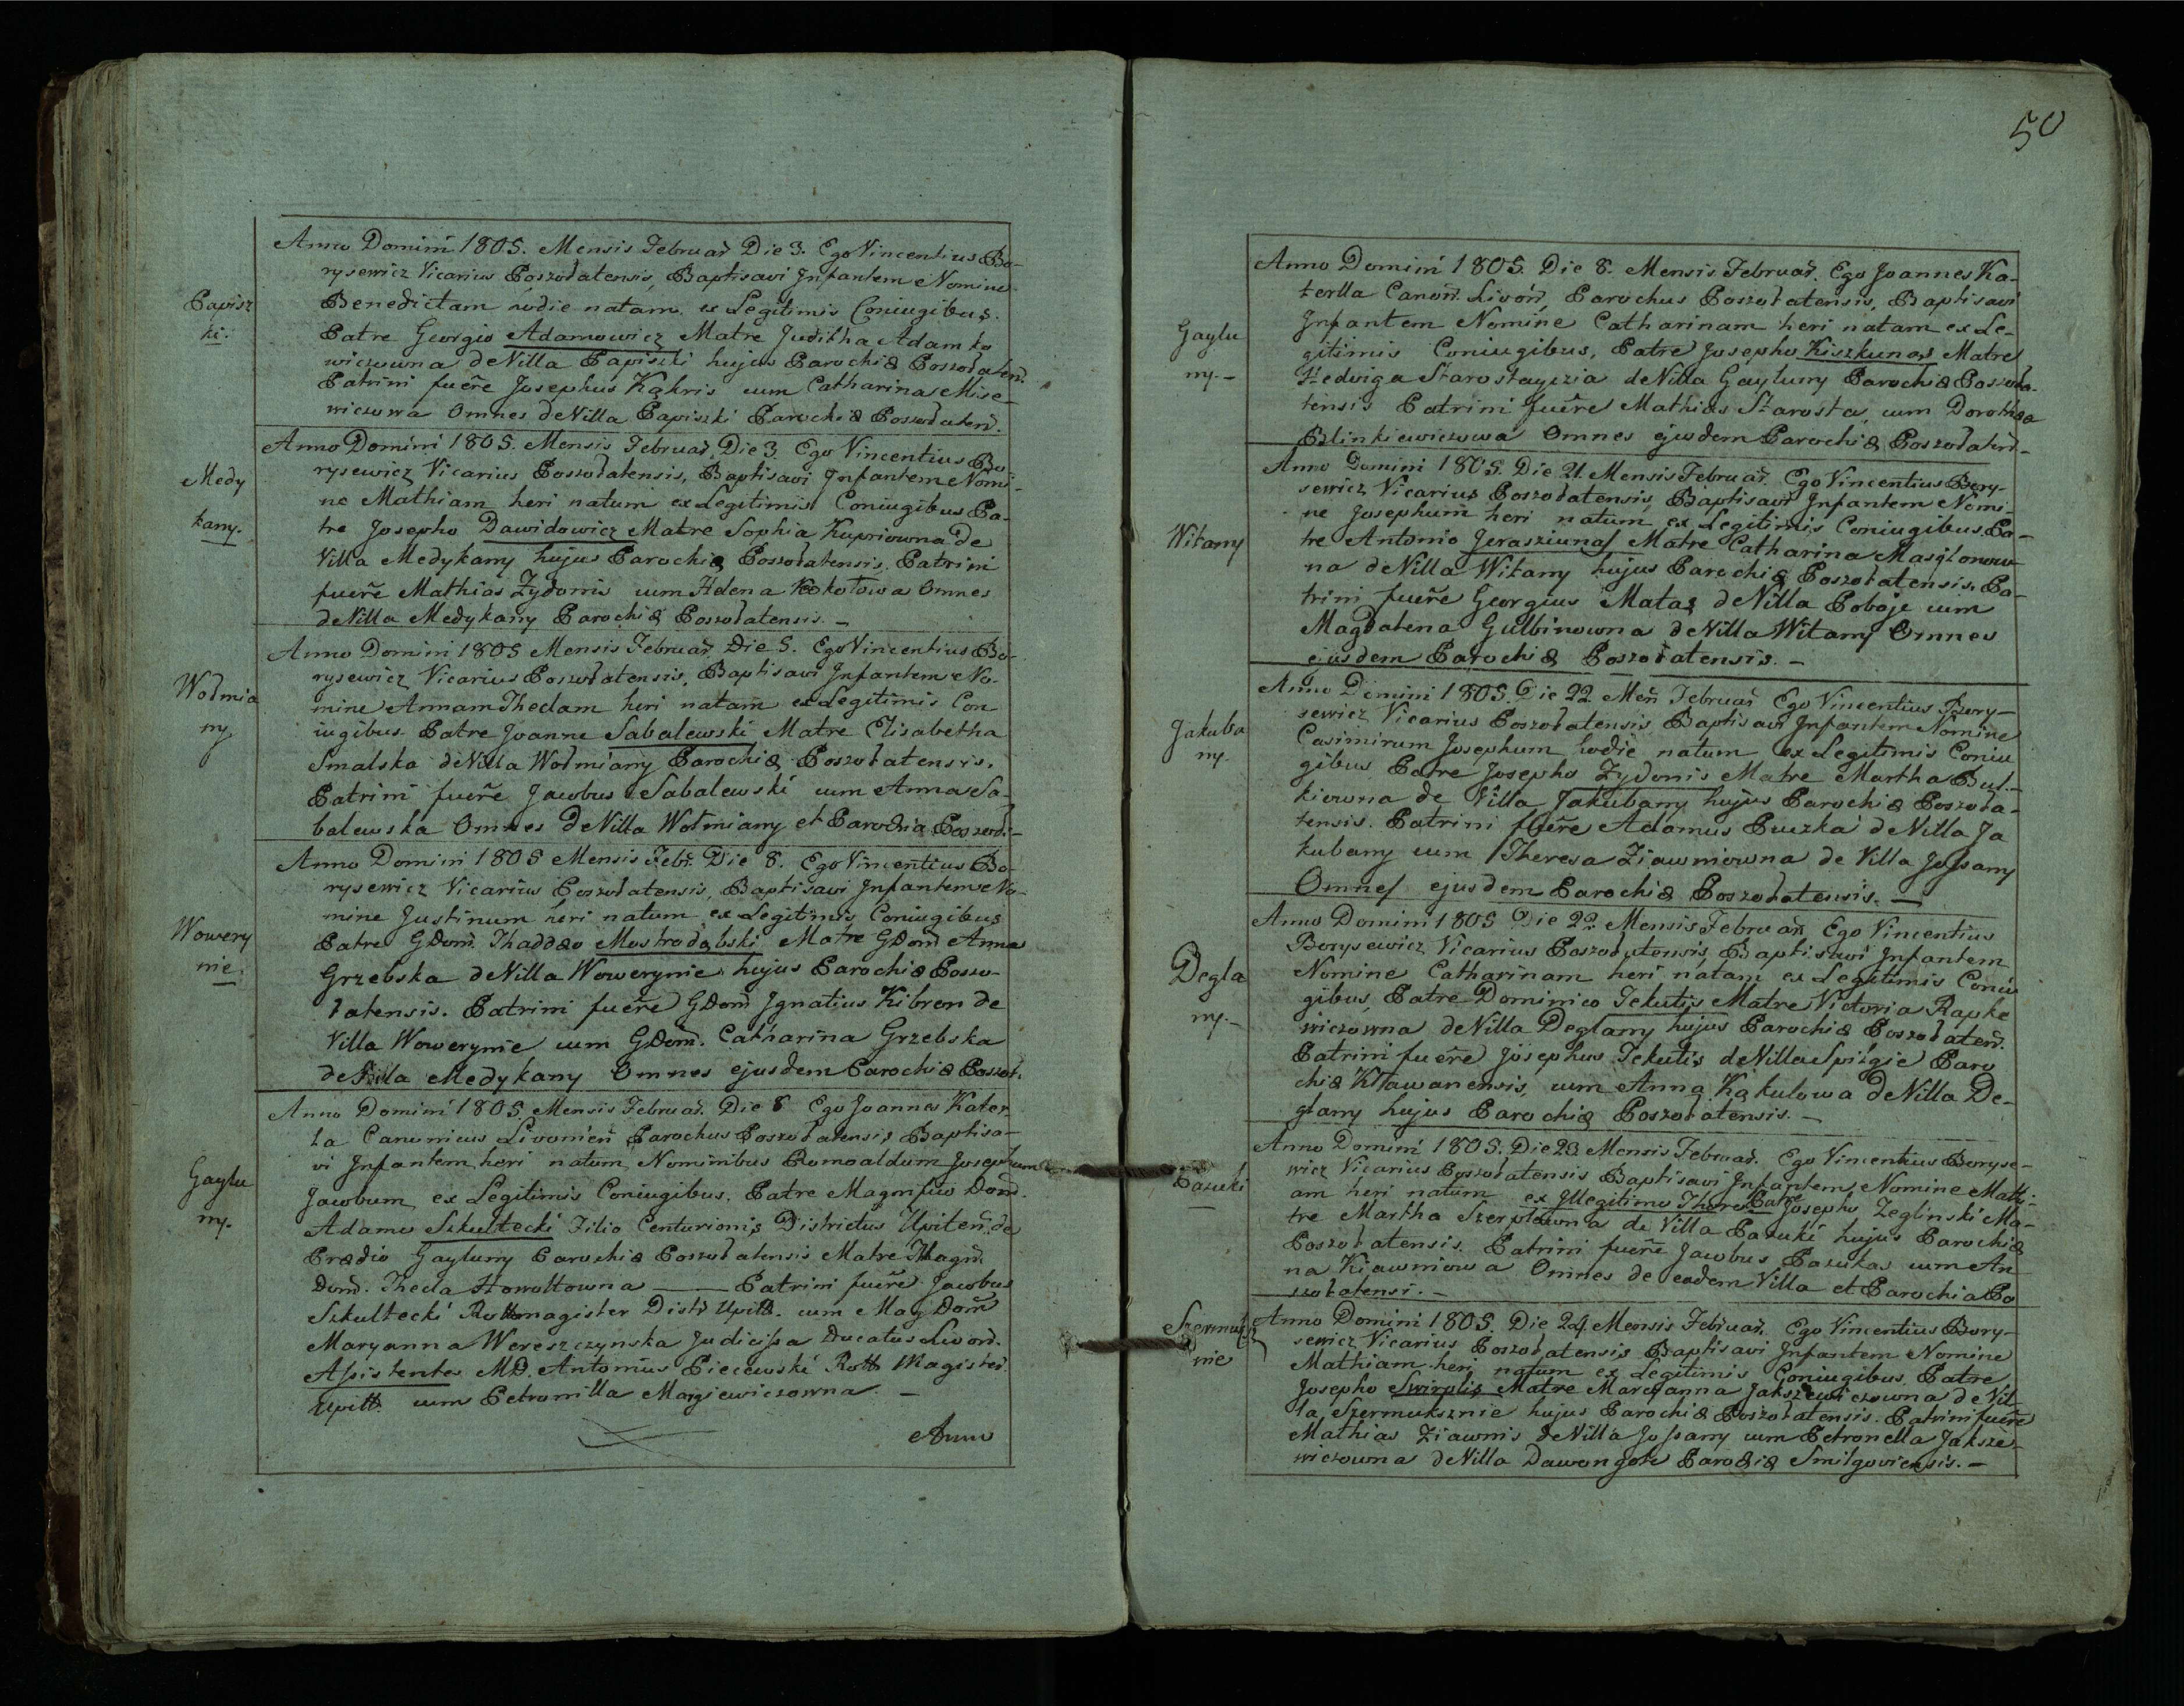 Papisz
ki.
Anno Domini 1805. Mensis Februar̃ Die 3. Ego Vincentius Bo-
rysewicz Vicarius Poszołatensis, Baptisavi Infantem Nomine
Benedictam hodie natam ex Legitimis Coniugibus.
Patre Georgio Adamowicz Matre Juditha Adamko
wiczowna de Villa Papiszki hujus Parochiæ Poszołaten̄.
Patrini fuere Josephus Kąkris cum Catharina Mise-
wiczowa Omnes de Villa Papiszki Parochiæ Poszołaten̄.
Medy
kany.
Anno Domini 1805. Mensis Februar̃ Die 3 Ego Vincentius Bo-
rysewicz Vicarius Poszołatensis, Baptisavi Infantem Nomi-
ne Mathiam heri natum ex Legitimis Coniugibus Pa-
tre Josepho Dawidowicz Matre Sophia Kupriowna De
Villa Medykany hujus Parochiæ Poszołatensis. Patrini
fuere Mathias Zydonis cum Helena Omnes
de Villa Medykany Parochiæ Poszołatensis. –
Wołmia
ny.
Anno Domini 1805 Mensis Februar̃ Die 5. Ego Vincentius Bo-
rysewicz Vicarius Poszołatensis, Baptisavi Infantem No-
mine Annam Theclam heri natam ex Legitimis Con
iugibus Patre Joanne Sabalewski Matre Elisabetha
Smalska de Villa Wołmiany Parochiæ Poszołatensis.
Patrini fuere Jacobus Sabalewski cum Anna Sa-
balewska Omnes de Villa Wołmiany et Parochia Poszoł.-
Wowery
nie.
Anno Domini 1805 Mensis Febr̃. Die 8. Ego Vincentius Bo-
rysewicz Vicarius Poszołatensis, Baptisavi Infantem No-
mine Justinum heri natum ex Legitimis Coniugibus
Patre GDom̃. Thaddæo Mostrodąbski Matre GDom̃ Anna
Grzebska de Villa Wowerynie hujus Parochiæ Poszo-
łatensis. Patrini fuere GDom̃ Ignatius Kibron de
Villa Wowerynie cum GDom̃. Catharina Grzebska
de Villa Medykany Omnes ejusdem Parochiæ Poszoł.
Gayłu
ny.
Anno Domini 1805. Mensis Februar̃. Die 8 Ego Joannes Kater
la Canonicus Livonien̄ Parochus Poszołatensis Baptisa-
vi Infantem heri natum, Nominibus Romoaldum Josephum
Jacobum ex Legitimis Coniugibus. Patre Magnifico Dom̃.
Adamo Szkultecki Filio Centurionis Districtus Upiten̄. de
Prædio Gayłuny Parochiæ Poszołatensis Matre Magn̄.
Dom̃. Thecla Horołtowna —— Patrini fuere Jacobus
Szkultecki Rottmagister Distr̃ Upitt. cum Mag Dom̃
Maryanna Wereszczynska Judicissa Ducatus Livon̄.
Assistentes MD. Antonius Pieczewski Rott Magister.
Upitt. cum Petronilla Margiewiczowna. –
Anno
50
Gayłu
ny. –
Anno Domini 1805. Die 8. Mensis Februar̃. Ego Joannes Ka-
terlla Canon̄. Livon̄, Parochus Poszołatensis, Baptisavi
Infantem Nomine Catharinam heri natam ex Le-
gitimis Coniugibus, Patre Josepho Kiszkunas Matre
Hedviga Starostayczia de Villa Gayłuny Parochiæ Poszoła-
tensis Patrini fuere Mathias Starosta, cum Dorothæa
Blinkiewiczowa Omnes ejusdem Parochiæ Poszołaten̄.-
Witany
Anno Domini 1805. Die 21. Mensis Februar̃. Ego Vincentius Bory-
sewicz Vicarius Poszołatensis, Baptisavi Infantem Nomi-
ne Josephum heri natum ex Legitimis Coniugibus. Pa-
tre Antonio Jerasziunas Matre Catharina
na de Villa Witany hujus Parochiæ Poszołatensis. Pa-
trini fuere Georgius Matas de Villa Poboje cum
Magdalena Gulbinowna de Villa Witany Omnes
ejusdem Parochiæ Poszołatensis. –
Jakuba
ny.
Anno Domini 1805. Die 22 Men̄ Februar̃ Ego Vincentius Bory-
sewicz Vicarius Poszołatensis Baptisavi Infantem Nomine
Casimirum Josephum hodie natum ex Legitimis Coniu
gibus, Patre Josepho Zydonis Matre Martha But.-
kiowna de Villa Jakubany hujus Parochiæ Poszoła-
tensis. Patrini fuere Adamus Puszka de Villa Ja
kubany cum Theresa Ziawniowna de Villa Jossany
Omnes ejusdem Parochiæ Poszołatensis. –
Degla
ny. –
Anno Domini 1805 Die 22 Mensis Februar̃ Ego Vincentius
Borysewicz Vicarius Poszołatensis, Baptisavi Infantem
Nomine Catharinam heri natam ex Legitimis Coniu
gibus, Patre Dominico Tekutis Matre Victoria Rapke
wiczowna de Villa Deglany hujus Parochiæ Poszołaten̄.
Patrini fuere Josephus Tekutis de Villa Spirgie Paro
chiæ Kławanensis, cum Anna Kąkulowa de Villa De-
glany hujus Parochiæ Poszołatensis. –
Pazuki
Anno Domini 1805. Die 23 Mensis Februar̃. Ego Vincentius Boryse-
wicz Vicarius Poszołatensis Baptisavi Infantem Nomine Mathi-
am heri natum ex Illegitimo Thoro Patre Josepho Zeglinski Ma-
tre Martha de Villa Pazuki hujus Parochiæ
Poszołatensis. Patrini fuere Jacobus Pazukas cum An
na Kiawniowa Omnes de eadem Villa et Parochia Po
szołatensi. –
Szermuksz
nie
Anno Domini 1805. Die 24 Mensis Februar̃. Ego Vincentius Bory-
sewicz Vicarius Poszołatensis Baptisavi Infantem Nomine
Mathiam heri natum ex Legitimis Coniugibus, Patre
Josepho Swirplis Matre Maryanna Jakszewiczowna de Vil-
la Szermuksznie hujus Parochiæ Poszołatensis. Patrini fuere
Mathias Ziawnis de Villa Jossany cum Petronella Jaksze-
wiczowna de Villa Dawongole Parochiæ Smilgoviensis. –